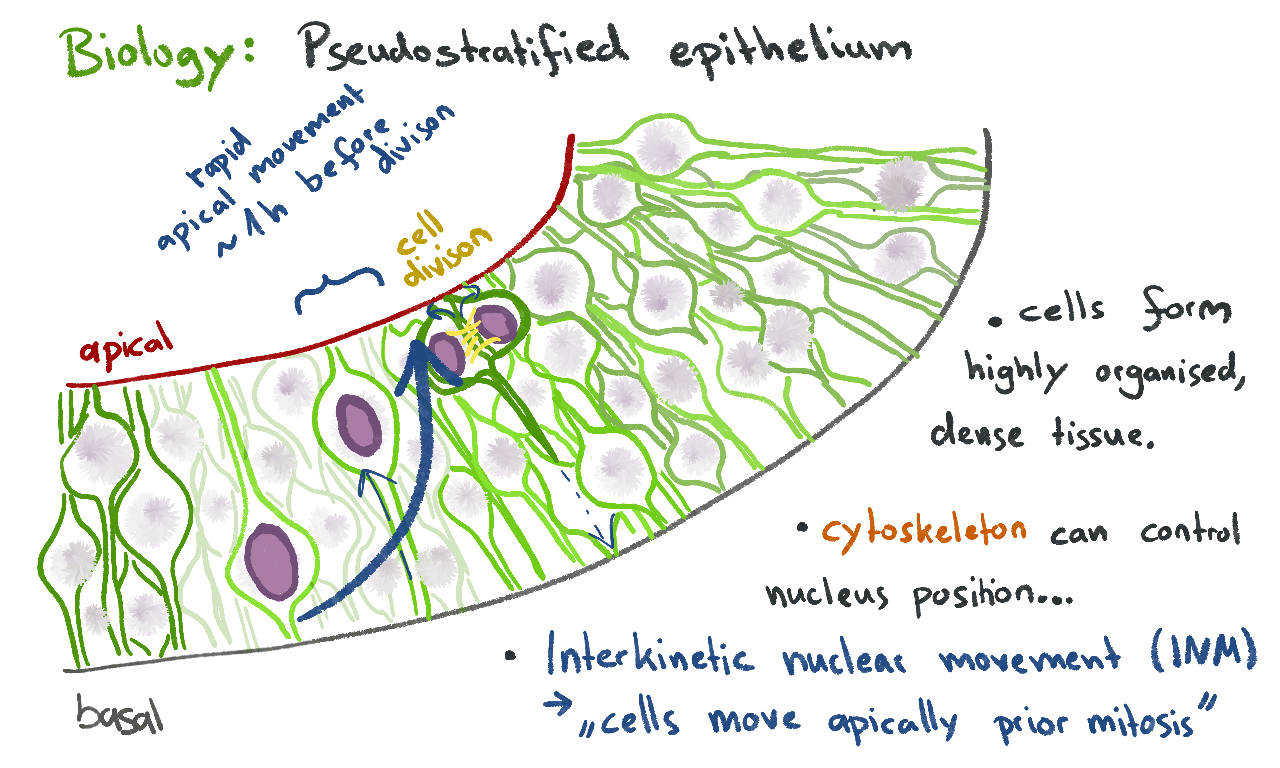 Biology: Pseudostratified epithelium
rapid
apical movement
~1h before
divison
cell
divison
apical
• cells form
highly organised,
dense tissue.
• cytoskeleton can control
nucleus position...
• Interkinetic nuclear movement (INM)
→ „cells move apically prior mitosis”
basal